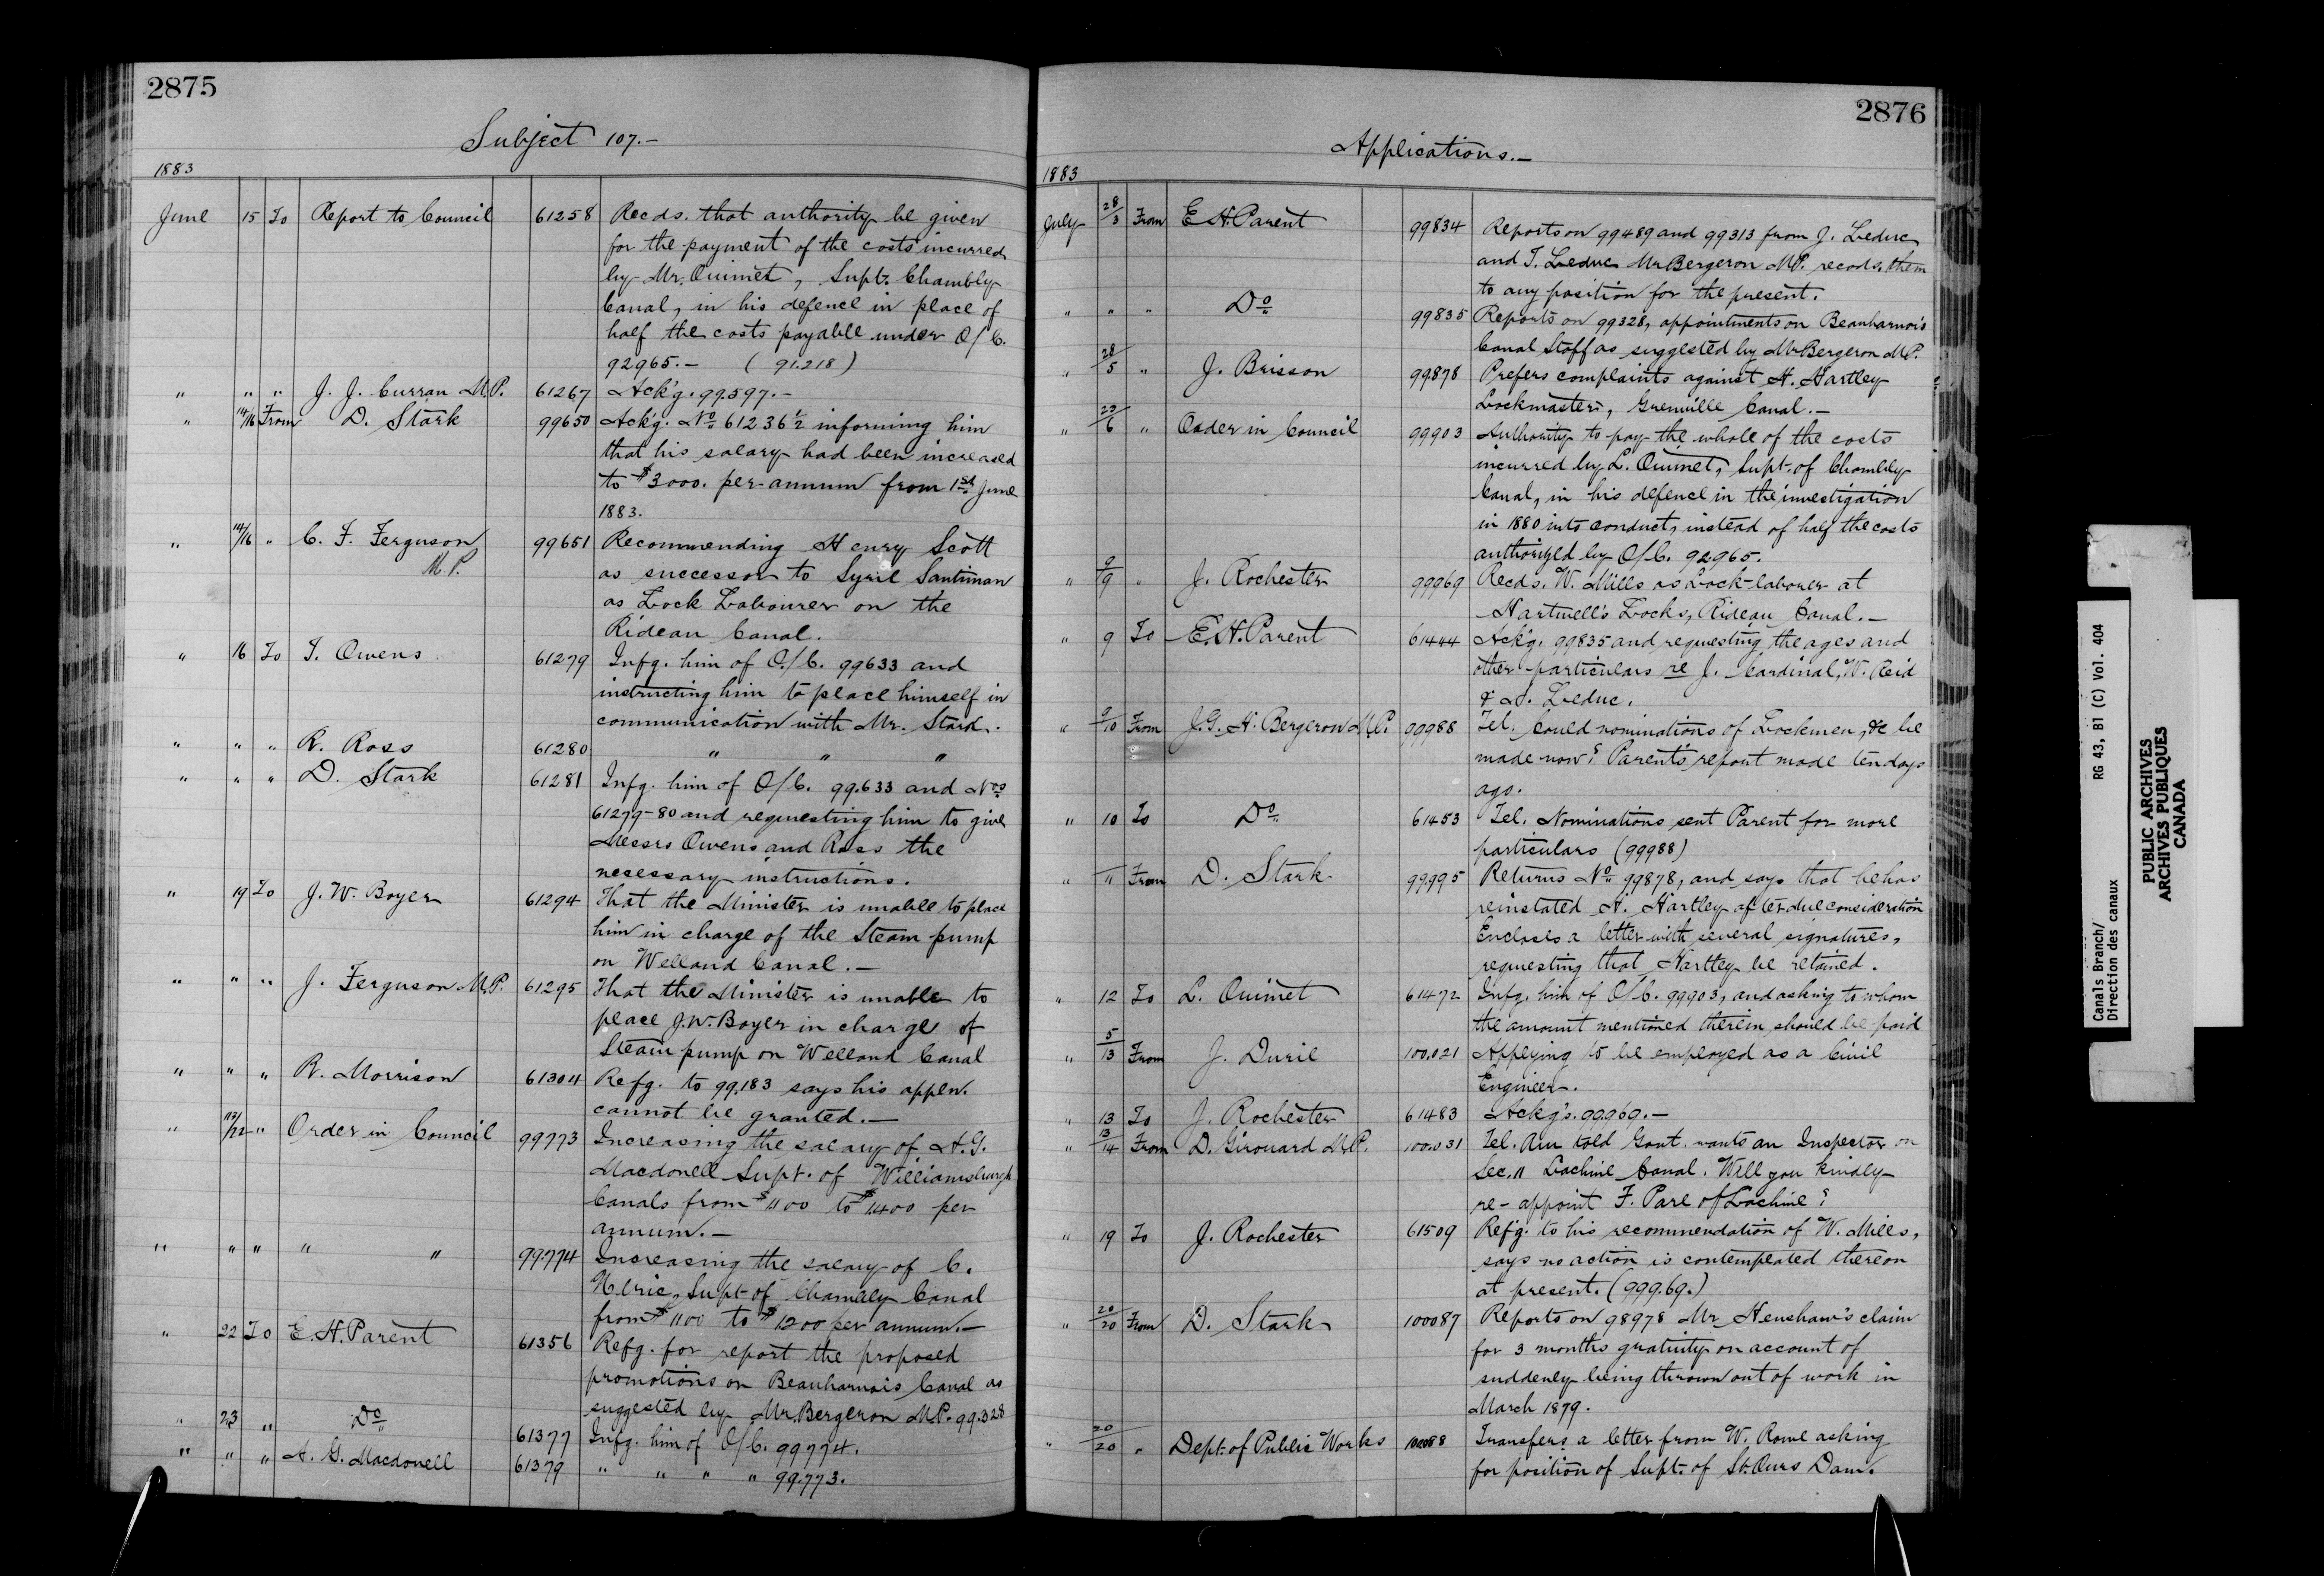 2875
Subject 107.—
1883
June 15 To Report to Council 61258 Recds. that authority be given
for the payment of the costs incurred
by Mr. Ouimet, Supt. Chambly
Canal, in his defence in place of
half the costs payable under O/C.
92965.— (91.218)
" " " J. J. Curran M.P. 61267 Ack'g. 99.597.—
" 14/16 From D. Stark 99650 Ack'g. No 61236½ informing him
that his salary had been increased
to $3000. per annum from 1st June
1883.
" 14/16 " C. F. Ferguson 99651 Recommending Henry Scott
M.P. as successor to Cyril Santiman
as Lock Labourer on the
Rideau Canal.
" 16 To T. Owens 61279 Infg. him of O/C. 99633 and
instructing him to place himself in
communication with Mr. Stark.
" " " R. Ross 61280 " " "
" " " D. Stark 61281 Infg. him of O/C. 99.633 and Nos
61279-80 and requesting him to give
Messrs Owens and Ross the
necessary instructions.
" 19 To J. W. Boyer 61294 That the Minister is unable to place
him in charge of the Steam pump
on Welland Canal.—
" " " J. Ferguson M.P. 61295 That the Minister is unable to
place J.W. Boyer in charge of
Steam pump on Welland Canal
" " " R. Morrison 61304 Refg. to 99.183 says his appln.
cannot be granted.—
" /22 " Order in Council 99773 Increasing the salary of A.G.
Macdonell Supt. of Williamsburgh
Canals from $1100 to $1400 per
annum.—
" " " " " 99774 Increasing the salary of C.
Ulric, Supt of Chambly Canal
from $1100 to $1200 per annum.—
" 22 To E. H. Parent 61356 Refg. for report the proposed
promotions on Beauharnois Canal as
suggested by Mr Bergeron M.P. 99.328
" 23 " Do 61377 Infg. him of O/C. 99774.
" " " A. G. Macdonell 61379 " " " " 99.773.
2876
Applications.—
1883
July 28/3 From E H. Parent 99834 Reports on 99489 and 99313 from J. Leduc
and T. Leduc Mr Bergeron M.P. recods. them
to any position for the present.
" " " Do 99835 Reports on 99328, appointments on Beauharnois
Canal Staff as suggested by Mr Bergeron M.P.
" 28/5 " J. Brisson 99878 Prefers complaints against H. Hartley
Lockmaster, Grenville Canal.—
" 23/6 " Order in Council 99903 Authority to pay the whole of the costs
incurred by L. Ouimet, Supt. of Chambly
Canal, in his defence in the investigation
in 1880 into conduct, instead of half the costs
authorized by O/C. 92965.
" 9/9 " J. Rochester 99969 Recds. W. Mills as Lock-laborer at
Hartwell's Locks, Rideau Canal.—
" 9 To E. H. Parent 61444 Ack'g. 99835 and requesting the ages and
other particulars re J. Cardinal, W. Reid
& J. Leduc.
" 9/10 From J. G. H. Bergeron M.P. 99988 Tel. Could nominations of Lockmen, &c be
made now? Parent's report made ten days
ago.
" 10 To Do 61453 Tel. Nominations sent Parent for more
particulars (99988)
" " From D. Stark 99995 Returns No 99878, and says that he has
reinstated H. Hartley after due consideration
Encloses a letter with several signatures,
requesting that Hartley be retained.
" 12 To L. Ouimet 61472 Infg. him of O/C. 99903, and asking to whom
the amount mentioned therein should be paid
" 5/13 From J. Duril 100,021 Applying to be employed as a Civil
Engineer.
" 13 To J. Rochester 61483 Ackg's. 99969.—
" 13/14 From D. Girouard M.P. 100.031 Tel. Am told Govt. wants an Inspector on
Sec. 11 Lachine Canal. Will you kindly
re-appoint F. Pare of Lachine?
" 19 To J. Rochester 61509 Ref'g. to his recommendation of W. Mills,
says no action is contemplated thereon
at present. (999.69.)
" 20/20 From D. Stark 100087 Reports on 98978 Mr Henshaw's claim
for 3 months gratuity on account of
suddenly being thrown out of work in
March 1879.
" 20/20 " Dept. of Public Works 100088 Transfers a letter from W. Rowe asking
for position of Supt. of St. Ours Dam.
Canals Branch/ RG 43, B1 (C) Vol. 404
Direction des canaux
PUBLIC ARCHIVES
ARCHIVES PUBLIQUES
CANADA